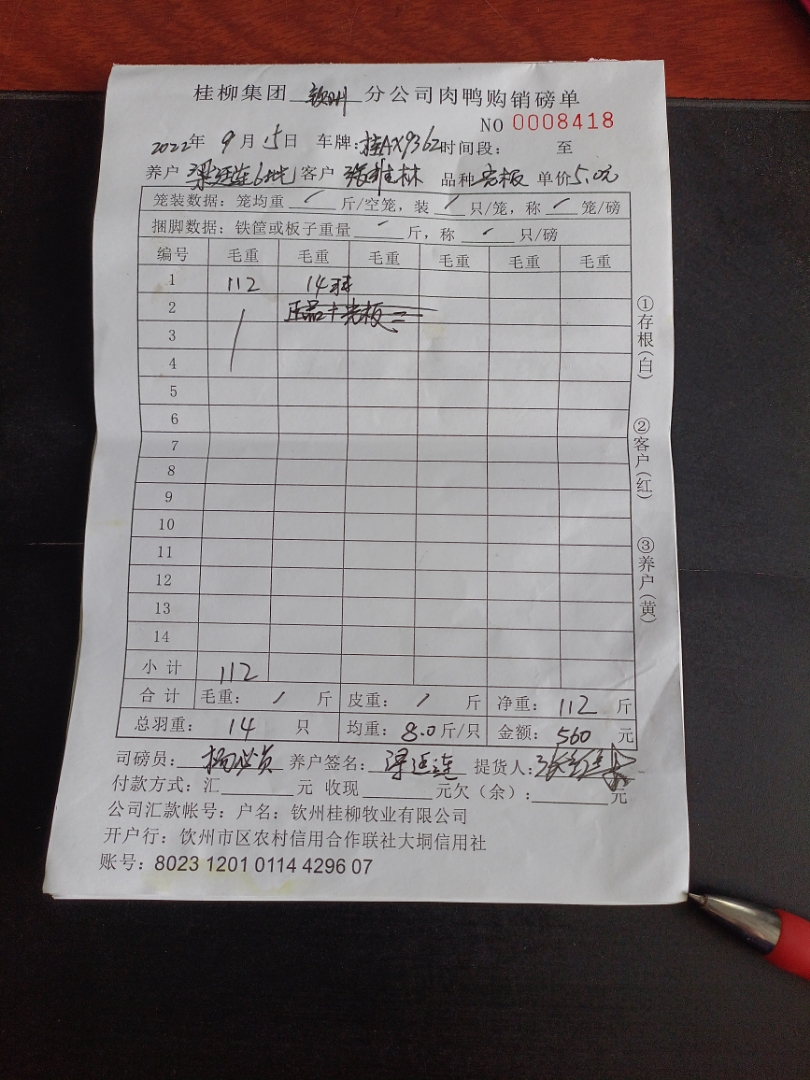 桂柳集团 钦州 分公司肉鸭购销磅单
NO 0008418
2022年 9 月 15日 车牌：桂AX9362 时间段： 至
养户 梁廷连6批 客户 张雅林 品种 壳板 单价 5.0元
笼装数据：笼均重 / 斤/空笼，装 / 只/笼，称 / 笼/磅
捆脚数据：铁筐或板子重量 / 斤，称 / 只/磅
编号 毛重 毛重 毛重 毛重 毛重 毛重
1 112 14羽
2 正品+壳板
3
4
5
6
7
8
9
10
11
12
13
14
小 计 112
合 计 毛重： / 斤 皮重： / 斤 净重： 112 斤
总羽重： 14 只 均重： 8.0 斤/只 金额： 560 元
司磅员： 养户签名： 梁廷连 提货人：
付款方式：汇 元 收现 元欠（余）： 元
公司汇款帐号：户名：钦州桂柳牧业有限公司
开户行：钦州市区农村信用合作联社大垌信用社
账号：8023 1201 0114 4296 07
①存根（白）
②客户（红）
③养户（黄）